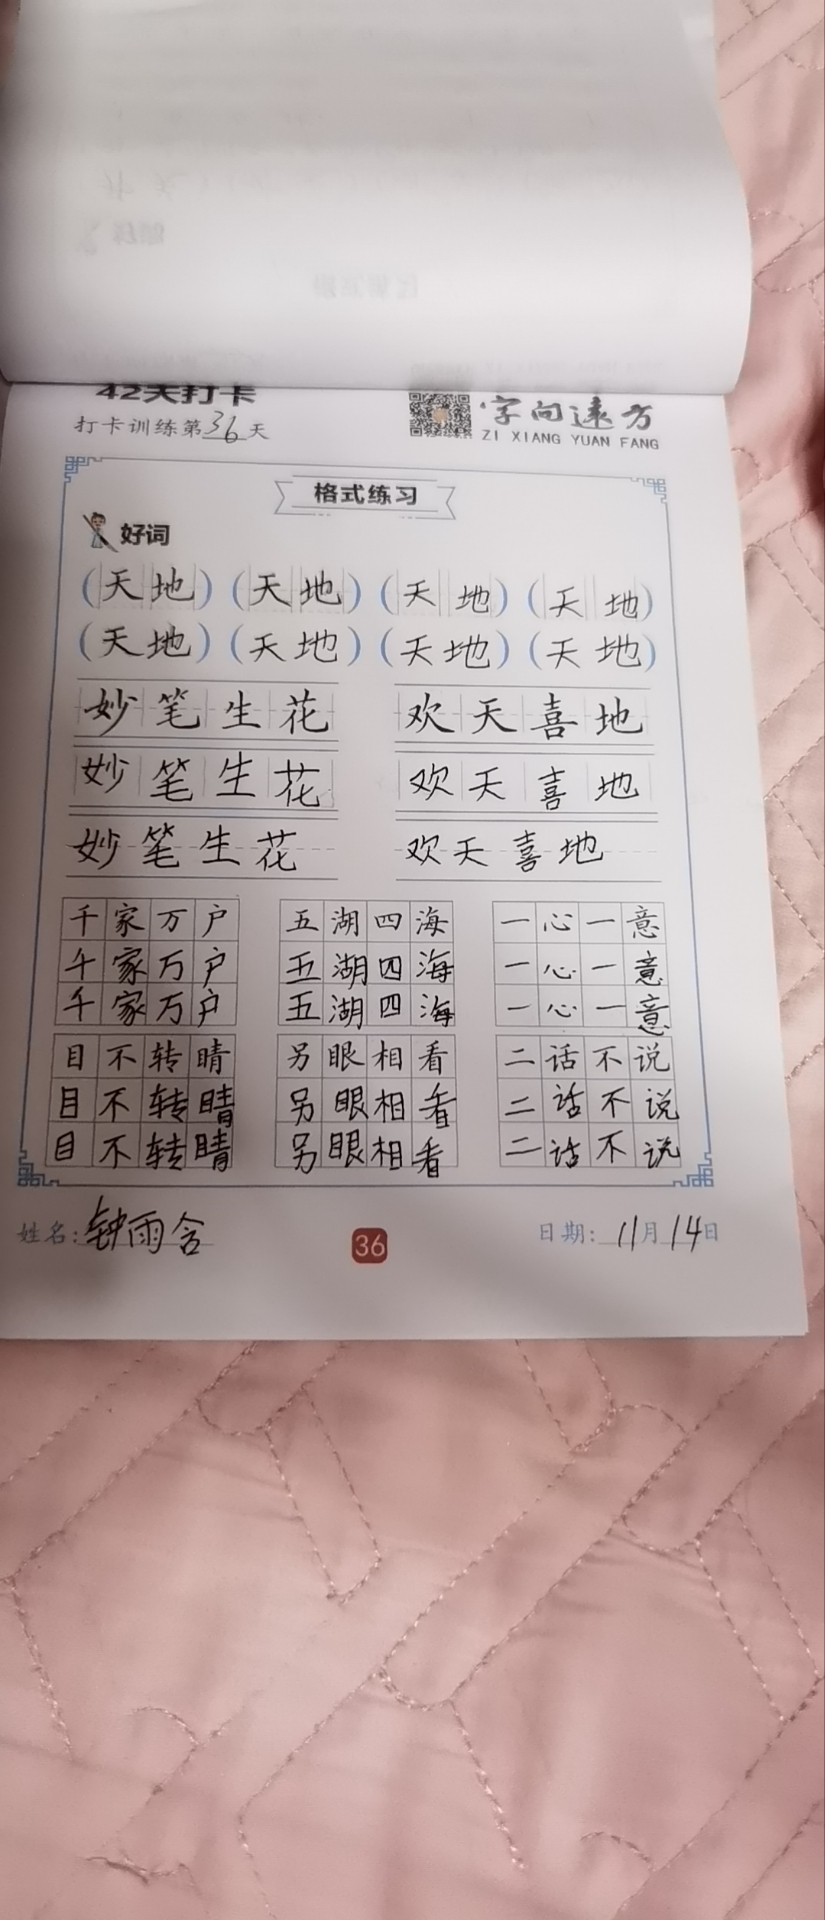 42天打卡
打卡训练第36天
字向远方
ZI XIANG YUAN FANG
格式练习
好词
(天地) (天地) (天地) (天地)
(天地) (天地) (天地) (天地)
妙笔生花 欢天喜地
妙笔生花 欢天喜地
妙笔生花 欢天喜地
千家万户 五湖四海 一心一意
千家万户 五湖四海 一心一意
千家万户 五湖四海 一心一意
目不转睛 另眼相看 二话不说
目不转睛 另眼相看 二话不说
目不转睛 另眼相看 二话不说
姓名:钟雨含 36 日期:11月14日